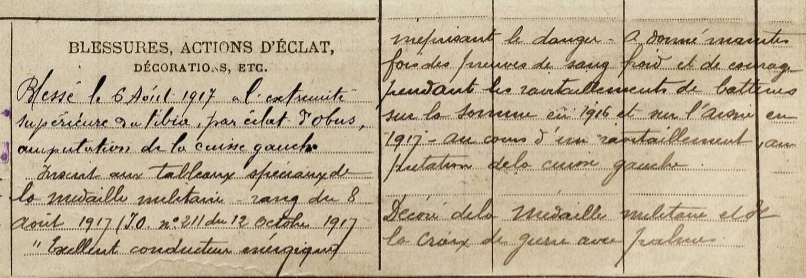 BLESSURES, ACTIONS D'ÉCLAT,
DÉCORATIONS, ETC.
Blessé le 6 Août 1917 a l'extremité
supérieure du tibia, par eclat d'obus,
amputation de la cuisse gauche
Inscrit aux tableaux speciaux de
la medaille militaire - rang du 8
août 1917 (JO. n° 211 du 12 octobre 1917
" Exellent conducteur énergique
meprisant le danger - A donné maintes
fois des preuves de sang froid et de courage
pendant les ravitaillements de batteries
sur la somme en 1916 et sur l'aisne en
1917 - au cours d'un ravitaillement, am
putation de la cuisse gauche.
Décoré de la Medaille militaire et de
la croix de guerre avec palmes